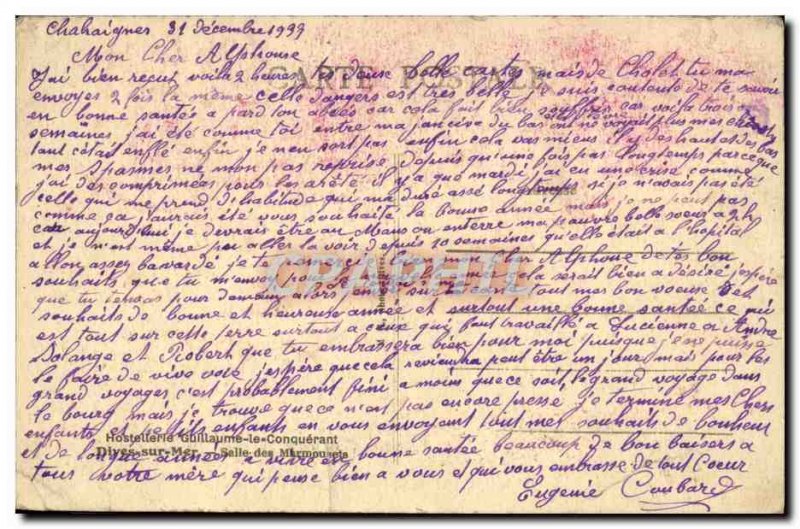 Chahaignes 31 décembre 1933
Mon Cher Alphonse
CARTE POSTALE
J'ai bien reçut voila 2 heures tes deuse belle cartes mais de Cholet tu ma
envoyes 2 fois la même celle d'angers est tres belle je suis contente de te savoir
en bonne santés a par ton abcés car cela fait bien souffrir car voila trois
semaines j'ai été comme toi entre ma jancive du bas on ne voyait plus mes
tant c'était enflé enfin je n'en sort pas enfin cela vas mieux il y a des haut et des bas
mes spasmes ne mon pas reprise depuis qu'une fois pas longtemps parce que
j'ai des comprimées pour les arêté il y a que mardi j'ai eu une crise comme
celle qui me prend d'habitude qui ma duré assé longtemps si je n'avais pas été
comme ça j'aurais été vous souhaité la bonne année mais je ne peut pas
car aujourd'hui je devrais être au Mans on enterre ma pauvre belle soeur a 2h
et je n'ai même pu aller la voir depuis 10 semaines qu'elle était a l'hôpital
allon assez bavardé je te mon cher Alphonse de tes bon
souhaits que tu m'envoy cela serait bien a désiré j'espère
que pour demain alors sur tout mes bon voeuse et
souhaits de bonne et heureuse année et surtout une bonne santée ce qui
est tout sur cette terre surtout a ceux qui faut travaillé a Lucienne a André
Solange et Robert que tu embrassera bien pour moi puisque je ne puisse
le faire de vive voix j'espère que cela reviendra peut être un jour mais pour les
grand voyages c'est probablement fini a moins que ce soit le grand voyage dans
le bourg mais je trouve que ce n'ai pas encore pressé je termine mes Chers
enfants et petits enfants en vous envoyant tout mes souhaits de bonheur
Hostellerie Guillaume-le-Conquérant
et de longue années a vivre en bonne santée beaucoup de bon baisers a
Dives-sur-Mer - Salle des Marmousets
tous votre mère qui pense bien a vous et qui vous embrasse de tout coeur
Eugenie Coubard
CPAPHIL